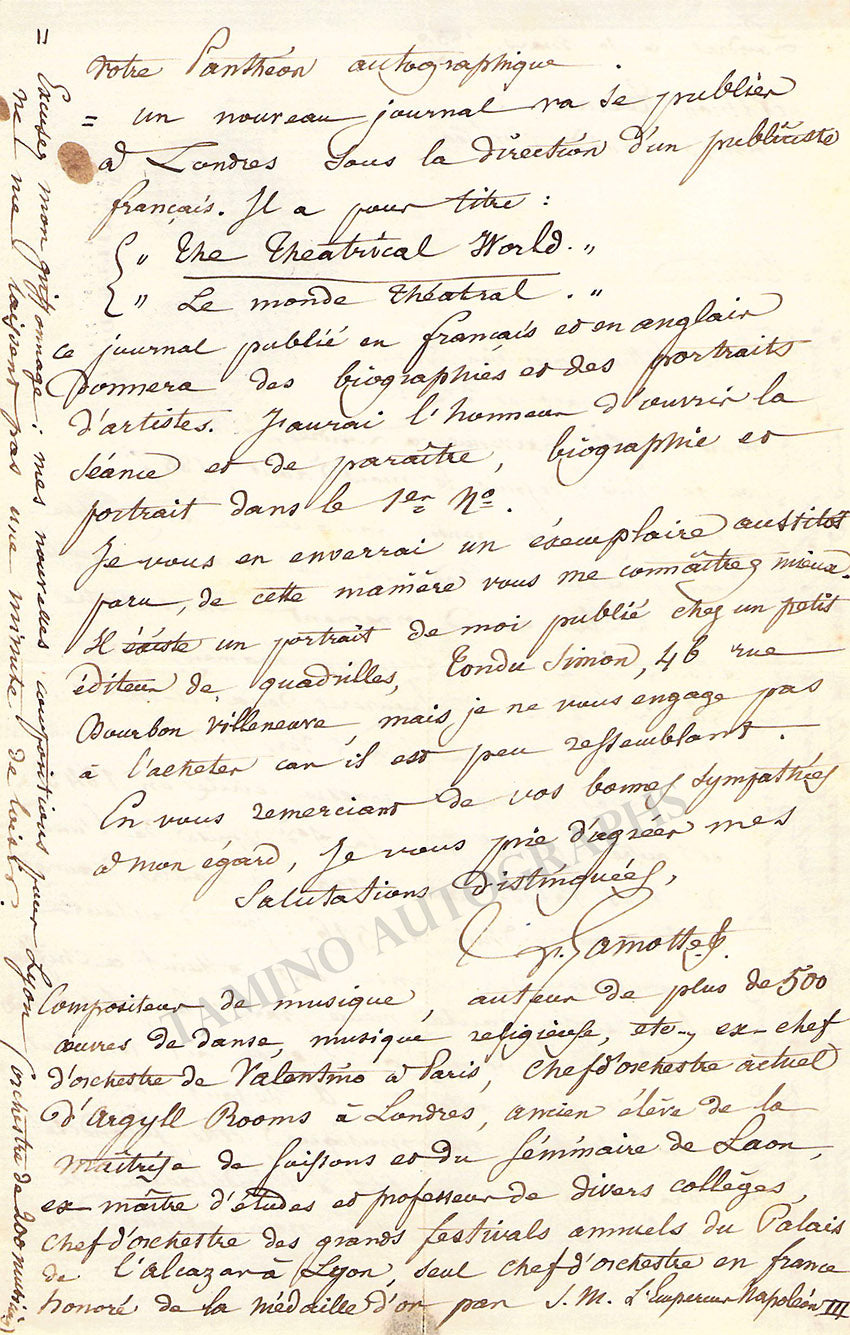 votre Panthéon autographique.
= un nouveau journal va se publier
à Londres sous la direction d'un publiciste
français. Il a pour titre :
{ „ The Theatrical World. „
{ „ Le monde théatral. „
ce journal publié en français et en anglais
donnera des biographies et des portraits
d'artistes. J'aurai l'honneur d'ouvrir la
séance et de paraître, biographie et
portrait dans le 1er No.
Je vous en enverrai un éxemplaire aussitôt
paru, de cette manière vous me connaîtrez mieux.
Il éxiste un portrait de moi publié chez un petit
éditeur de quadrilles, Tondu Simon, 46 rue
Bourbon villeneuve, mais je ne vous engage pas
à l'acheter car il est peu ressemblant.
En vous remerciant de vos bonnes sympathies
à mon égard, Je vous prie d'agréer mes
Salutations distinguées,
Lamotte
Compositeur de musique, auteur de plus de 500
œuvres de danse, musique religieuse, etc., ex-chef
d'orchestre de Valentino à Paris, chef d'orchestre actuel
d'Argyll Rooms à Londres, ancien élève de la
maîtrise de Soissons et du Séminaire de Laon,
ex-maître d'études et professeur de divers collèges,
chef d'orchestre des grands festivals annuels du Palais
de l'Alcazar à Lyon, seul chef d'orchestre en france
honoré de la médaille d'or par S. M. L'Empereur Napoléon III
= Excusez mon griffonnage ; mes nouvelles compositions pour Lyon (orchestre de 200 musiciens)
ne me laissent pas une minute de loisir.
TAMINO AUTOGRAPHS